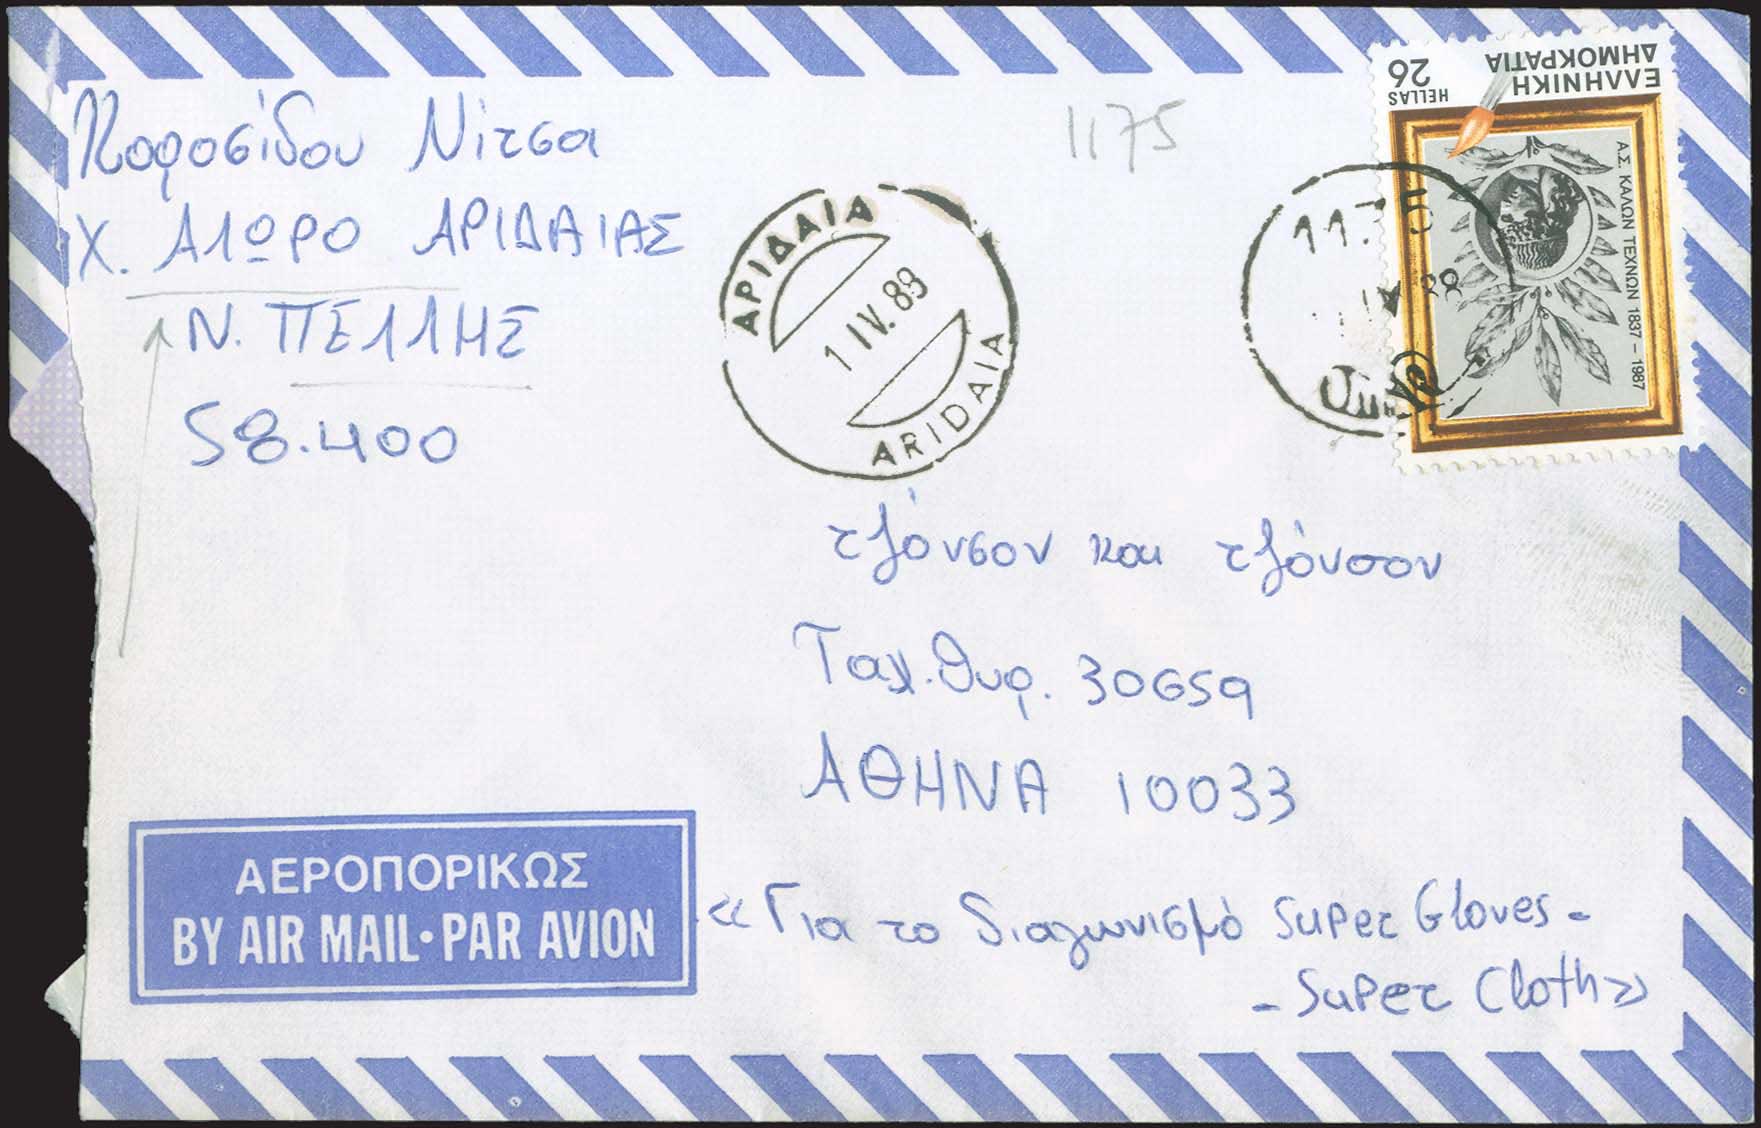 Κοφοσίδου Νίτσα
Χ. ΑΛΩΡΟ ΑΡΙΔΑΙΑΣ
Ν. ΠΕΛΛΗΣ
58.400
1175
ΑΡΙΔΑΙΑ
1 IV. 89
ARIDAIA
ΕΛΛΗΝΙΚΗ
ΔΗΜΟΚΡΑΤΙΑ
HELLAS
26
Α.Σ. ΚΑΛΩΝ ΤΕΧΝΩΝ 1837-1987
τζόνσον και τζόνσον
Ταχ. Θυρ. 30659
ΑΘΗΝΑ 10033
ΑΕΡΟΠΟΡΙΚΩΣ
BY AIR MAIL•PAR AVION
«Για το διαγωνισμό Super Gloves -
- Super Cloth»